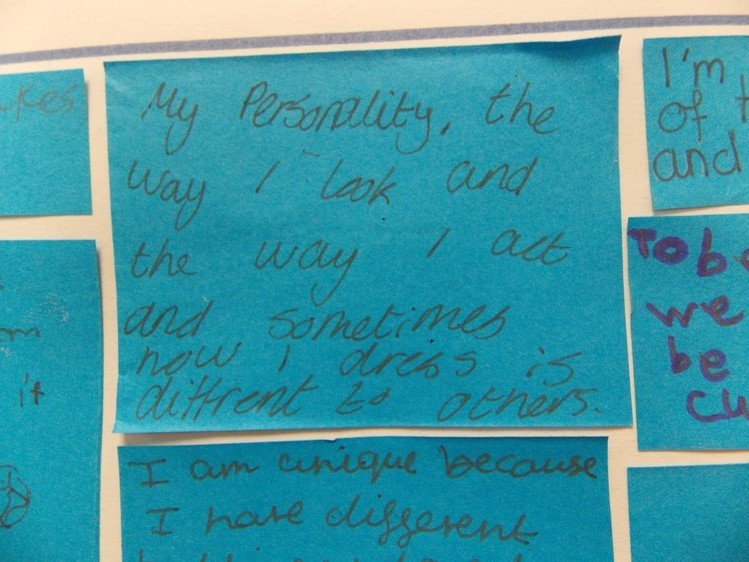 My Personality, the
way I look and
the way I act
and sometimes
how I dress is
diffrent to others.
I am unique because
I have different
I'm
of
and
To b
we
be
cu
it